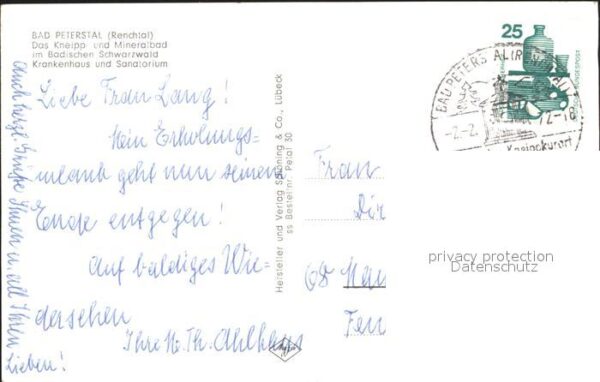 BAD PETERSTAL (Renchtal)
Das Kneipp- und Mineralbad
im Badischen Schwarzwald
Krankenhaus und Sanatorium
Liebe Frau Lang!
Mein Erholungs=
urlaub geht nun seinem
Ende entgegen!
Auf baldiges Wie=
dersehen
Ihre Th. Ahlhaus
Auch herzl. Grüße Ihnen u. all Ihren
Lieben!
Hersteller und Verlag Schöning & Co., Lübeck
Bestellnr. Petal 30
25
DEUTSCHE BUNDESPOST
BAD PETERSTAL
-2.-2. 72-18
Kneippkurort
Frau
Dir
68 Man
Feu
privacy protection
Datenschutz